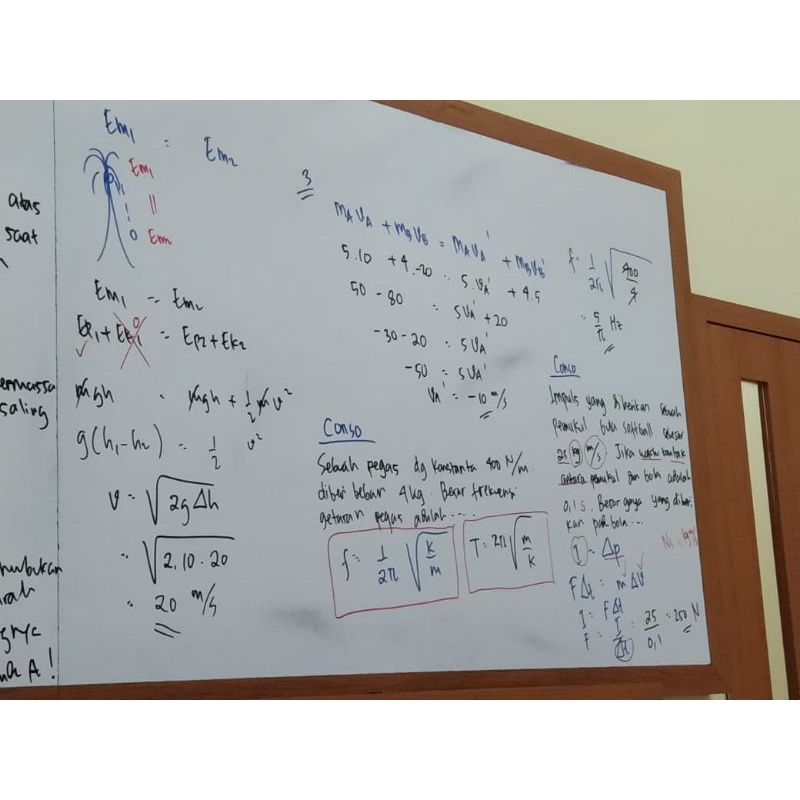 atas
saat
saling
A!
Em₁ = Em₂
Em₁
||
Em₂
Em₁ = Em₂
Ep₁+Ek₁ 0 = Ep₂+Ek₂
mgh = mgh + 1/2 m v²
g(h₁-h₂) = 1/2 v²
v = √2gΔh
= √2.10.20
= 20 m/s
3
mAvA + mBvB = mAvA' + mBvB'
5.10 + 4.-20 = 5.vA' + 4.5
50 - 80 = 5vA' + 20
-30-20 = 5vA'
-50 = 5vA'
vA' = -10 m/s
Conso
Sebuah pegas dg konstanta 400 N/m
diberi beban 4kg. Besar frekuensi
getaran pegas adalah....
f = 1/2π √k/m
T = 2π √m/k
f = 1/2π √400/4
= 5/π Hz
Conso
Impuls yang diberikan sebuah
pemukul bola softball sebesar
25 kg m/s. Jika
antara pemukul dan bola adalah
0,1 s. Besar gaya yang diberi
kan pada bola...
I = Δp
FΔt = m Δv
I = FΔt
F = I/Δt = 25/0,1 = 250 N